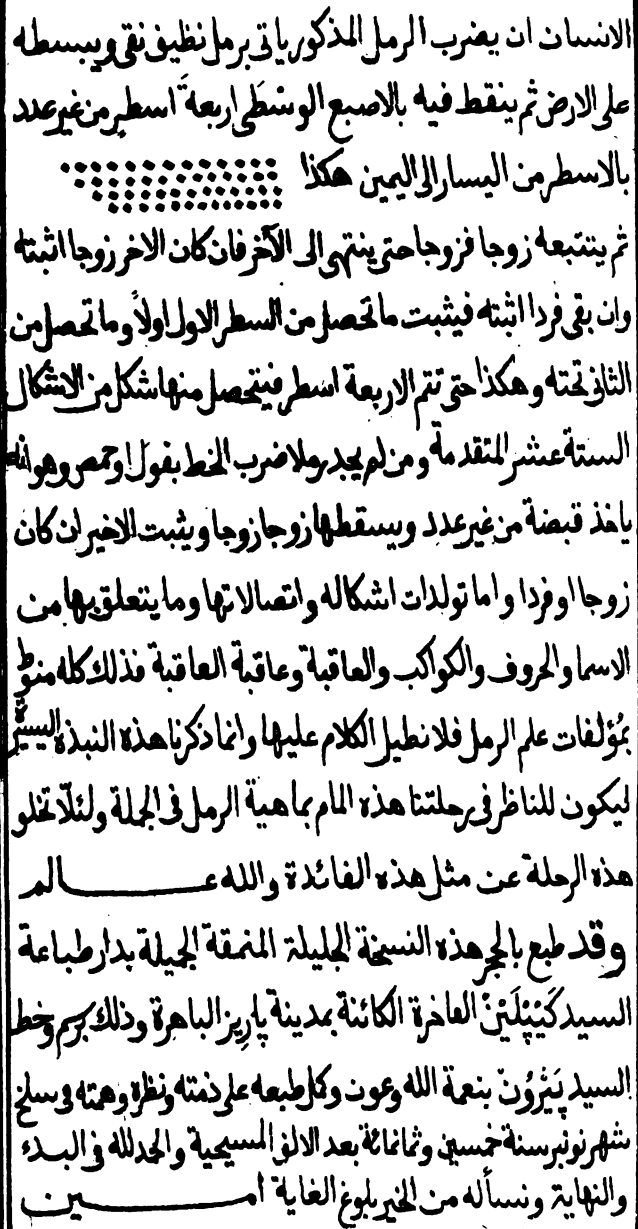 الانسان ان يضرب الرمل المذكور ياتى برمل نظيف نقى ويبسطه
على الارض ثم ينقط فيه بالاصبع الوسطى اربعة اسطر من غير عدد
بالاسطر من اليسار الى اليمين هكذا
ثم يتتبعه زوجا فزوجا حتى ينتهى الى الآخر فان كان الاخر زوجا اثبته
وان بقى فردا اثبته فيثبت ما تحصل من السطر الاول اولاً وما تحصل من
الثانى تحته وهكذا حتى تتم الاربعة اسطر فيتحصل منها شكل من الاشكال
الستة عشر المتقدمة ومن لم يجد رملا ضرب الخط بفول او حمص وهو انه
ياخذ قبضة من غير عدد ويسقطها زوجا زوجا ويثبت الاخير ان كان
زوجا او فردا واما تولدات اشكاله واتصالاتها وما يتعلق بها من
الاسما والحروف والكواكب والعاقبة وعاقبة العاقبة فذلك كله منوط
بمُؤلفات علم الرمل فلا نطيل الكلام عليها وانما ذكرنا هذه النبذة اليسيرة
ليكون للناظر فى رحلتنا هذه المام بماهية الرمل فى الجملة ولئلّا تخلو
هذه الرحلة عن مثل هذه الفائدة والله عـــالم
وقد طبع بالحجر هذه النسخة الجليلة المنمقة الجميلة بدار طباعة
السيد كَيْپْلَيْنْ الفاخرة الكائنة بمدينة پاريز الباهرة وذلك برسم وخط
السيد پَيْرُونْ بنعمة الله وعون وكمل طبعه على ذمته ونظره وهمته فى سلخ
شهر نونبر سنة خمسين وثمانمائة بعد الالف المسيحية والحمد لله فى البدء
والنهاية ونسأله من الخير بلوغ الغاية امـــين